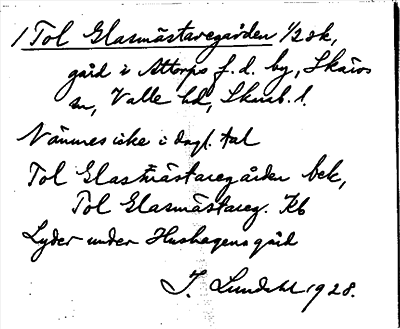 1 Tol Glasmästaregården 1/2 sk,
gård i Attorps f.d. by, Skärvs
sn, Valle hd, Skarab. l.
Nämnes icke i dagl. tal
Tol Glasmästaregården bek,
Tol Glasmästareg. Kb
Lyder under Hushagens gård
I. Lundahl 1928.